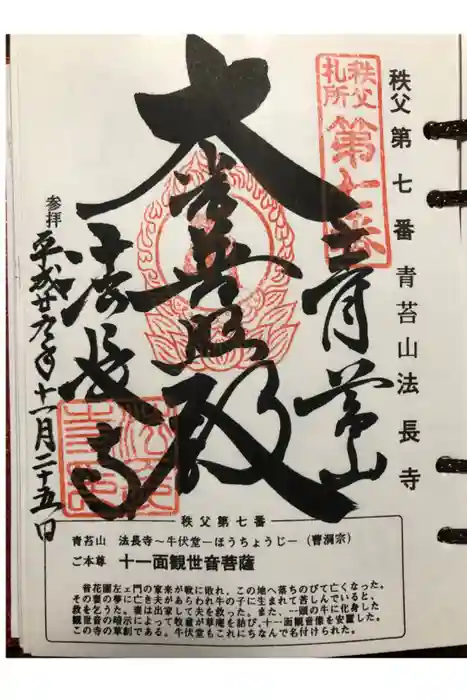 秩父第七番 青苔山法長寺
秩父
札所
第七番
青苔山
大光普照殿
法長寺
参拝
平成廿九年十一月二十五日
秩父第七番
青苔山 法長寺〜牛伏堂―ほうちょうじ―(曹洞宗)
ご本尊 十一面観世音菩薩
昔花園左ェ門の家来が戦に敗れ、この地へ落ちのびて亡くなった。
その妻の夢に亡き夫があらわれ牛の子に生まれて苦しんでいると、
救を乞う。妻は出家して夫を救った。また、一頭の牛に化身した
観世音の暗示によって牧童が草庵を詰び、十一面観音像を安置した。
この寺の草創である。牛伏堂もこれにちなんで名付けられた。